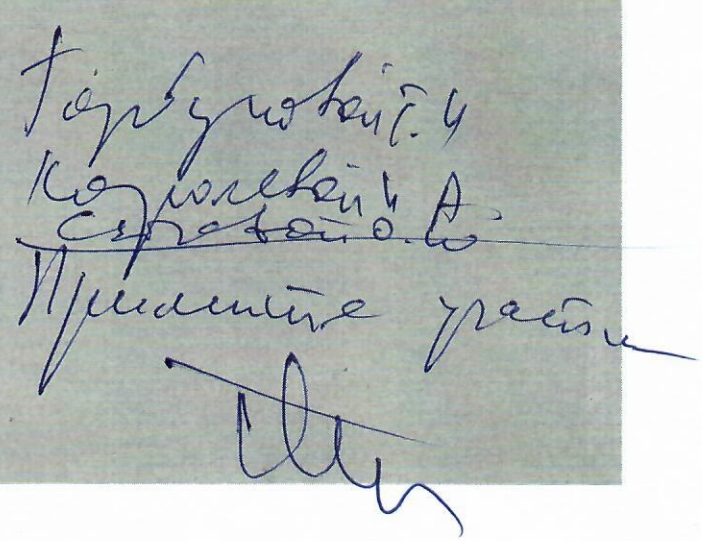 Горбуновой Т. И
Королевой И А
Серовой О. Ю
Примите участие